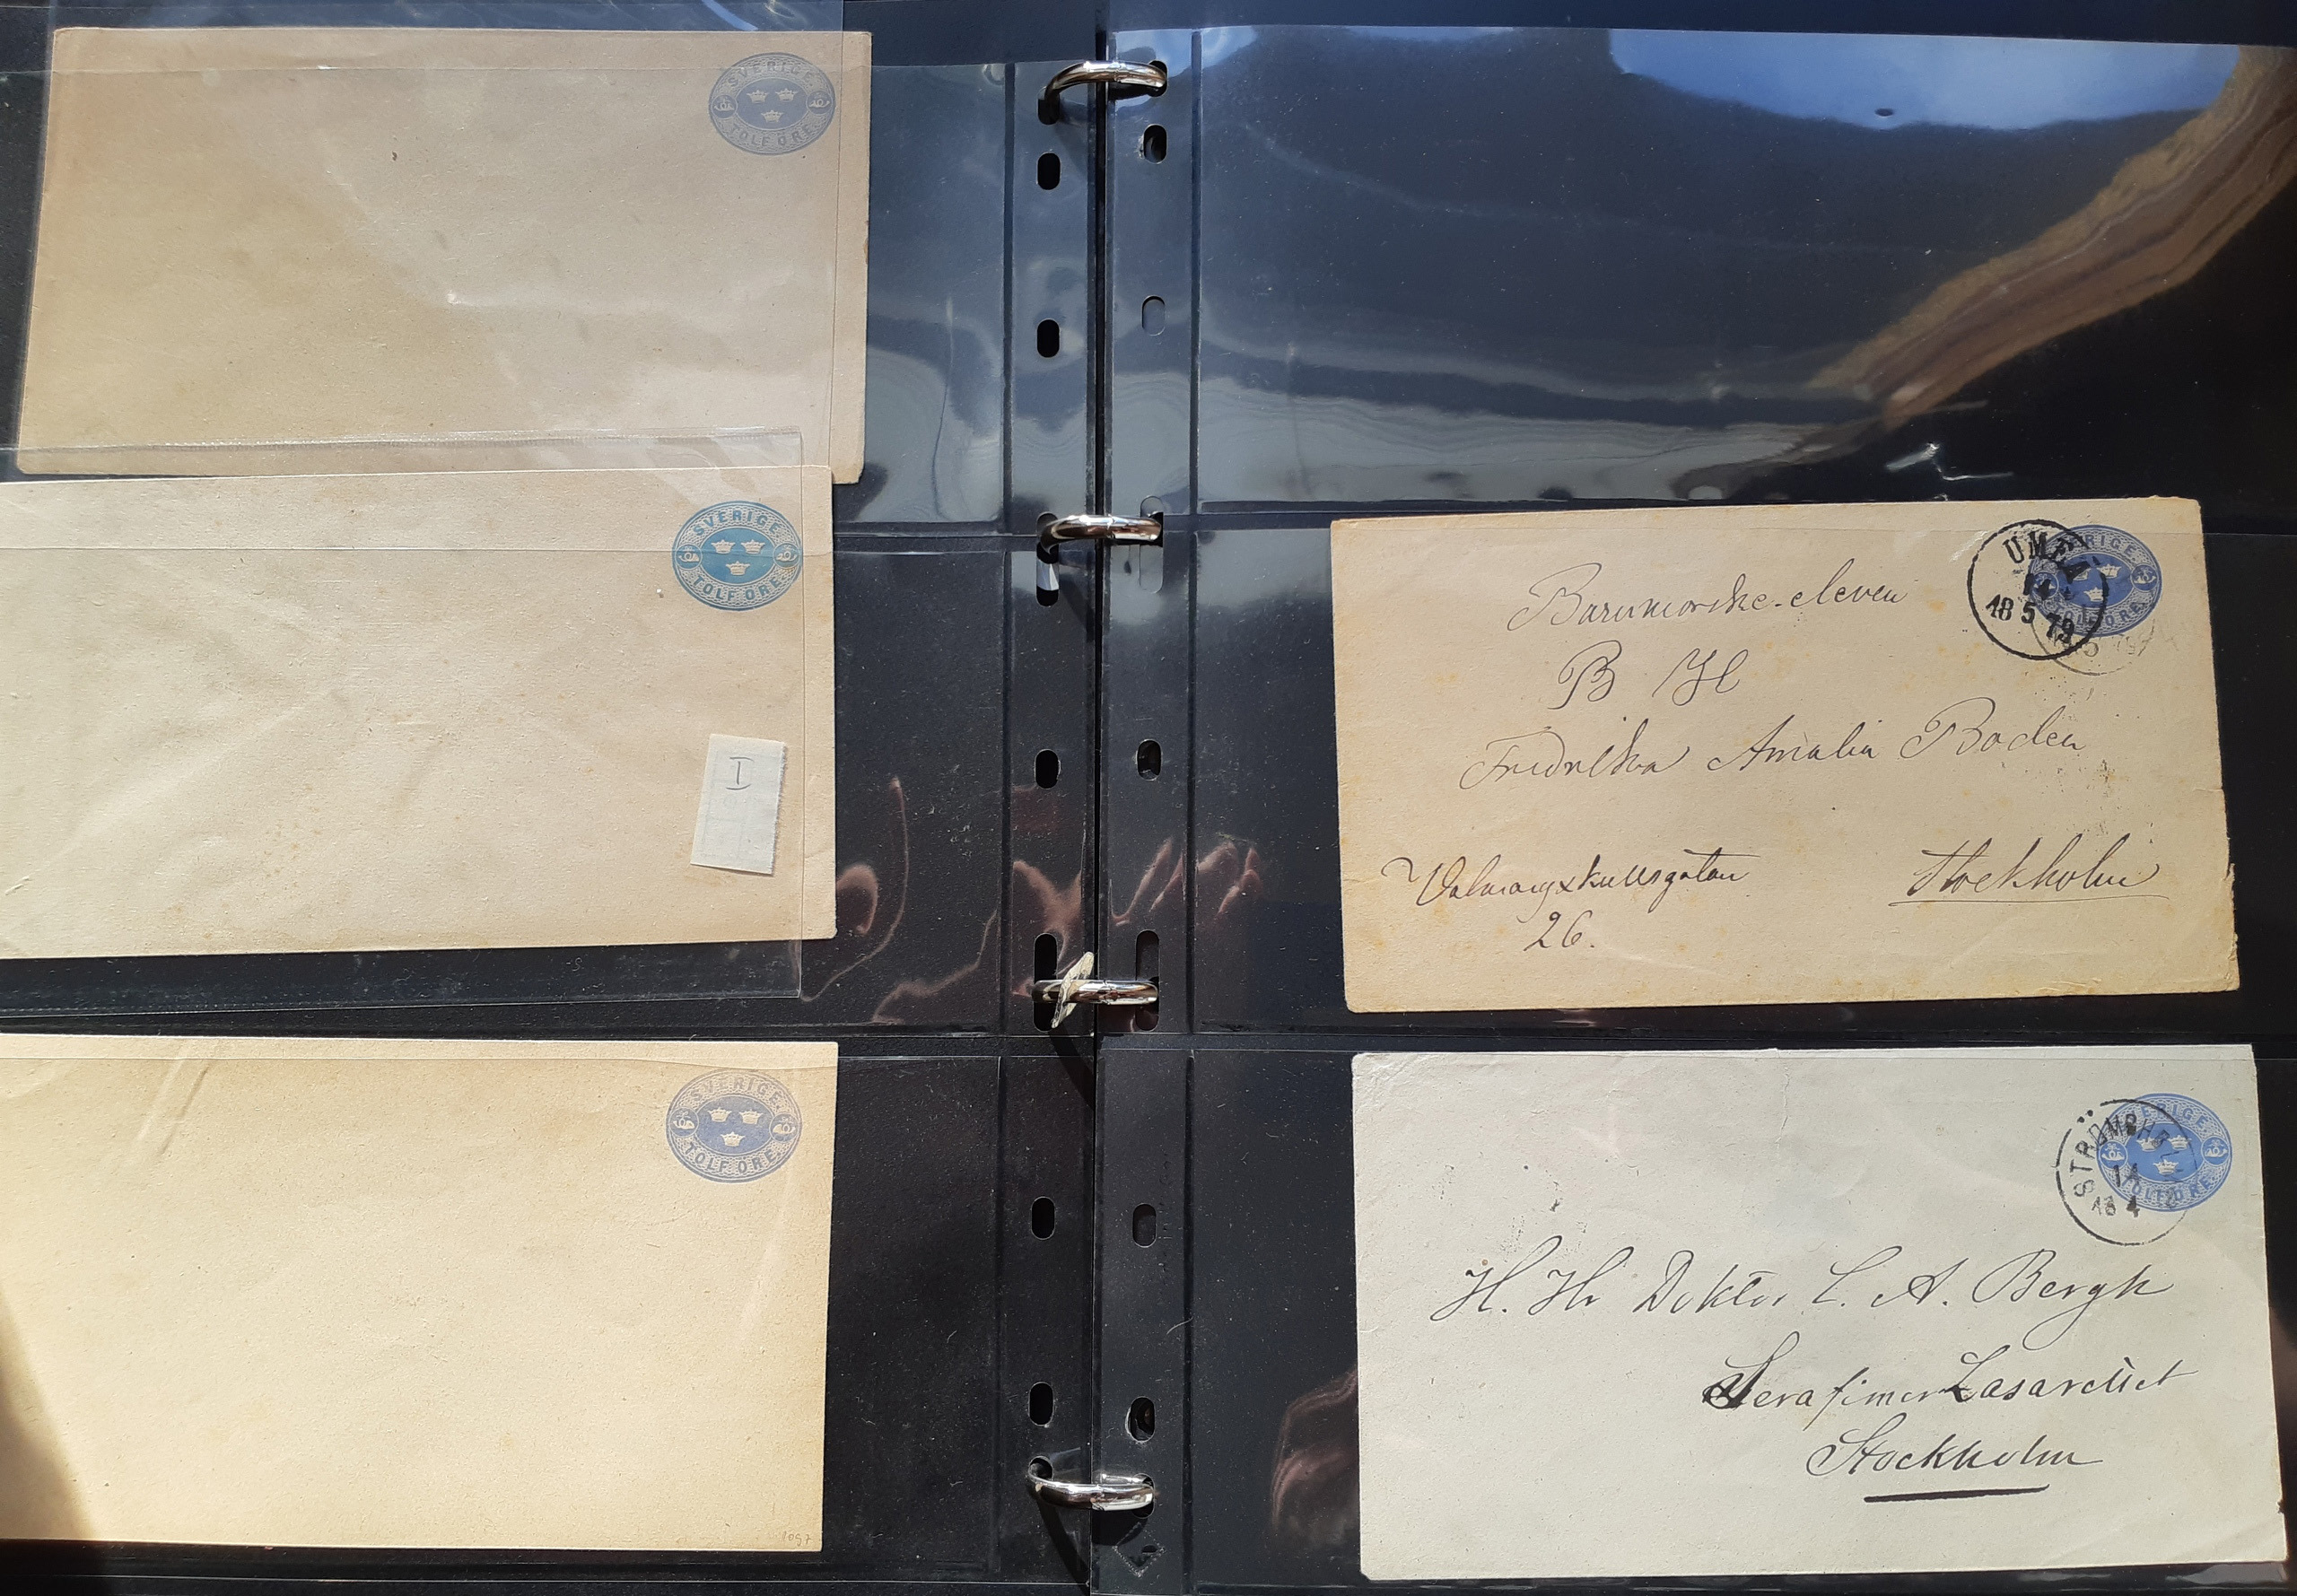 SVERIGE
TOLF ÖRE
SVERIGE
TOLF ÖRE
I
SVERIGE
TOLF ÖRE
1097
SVERIGE
TOLF ÖRE
UMEÅ
14
18 5 79
B H
Amalia Boden
Stockholm
26.
SVERIGE
TOLF ÖRE
14
18 4
H. Hr Doktor C. A. Bergh
Serafimer Lasarettet
Stockholm